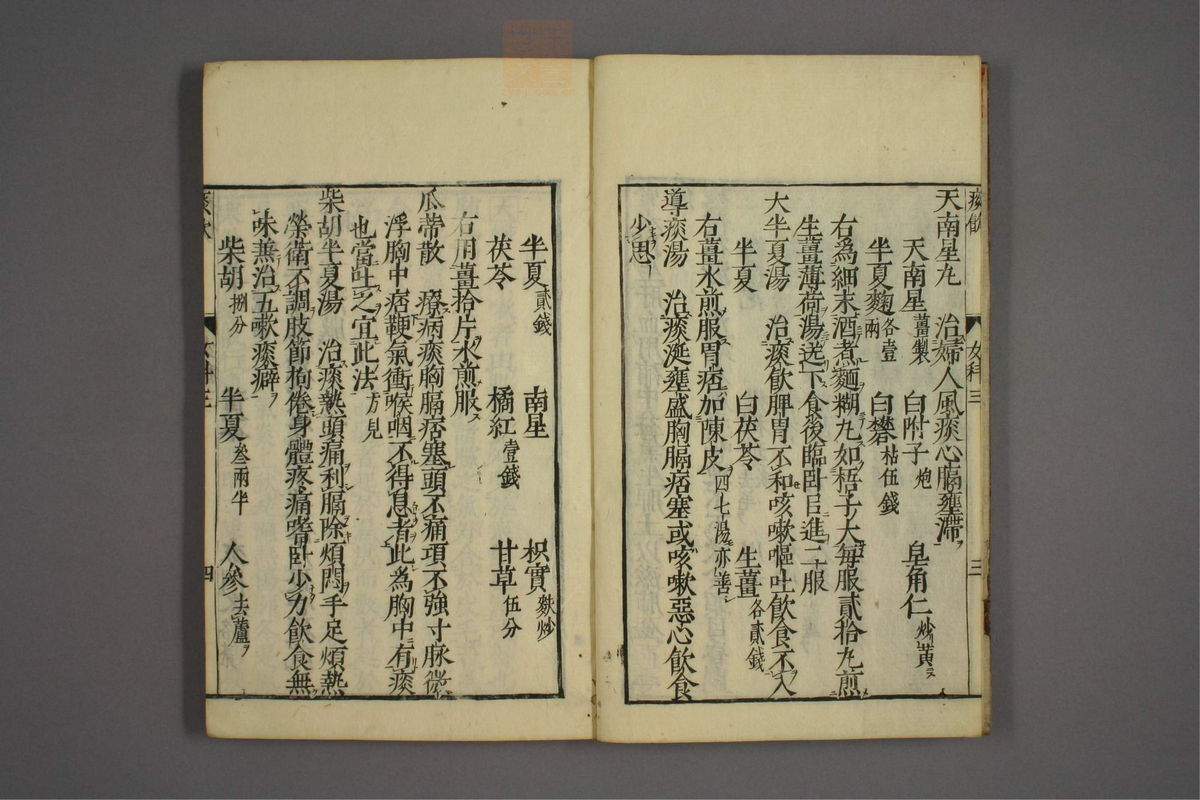 痰飲 女科三 三
天南星丸 治婦人風痰心膈壅滯
天南星薑製 白附子炮 皂角仁炒黃
半夏麴各壹兩 白礬枯伍錢
右為細末酒煮麵糊丸如梧子大每服貳拾丸煎
生薑薄荷湯送下食後臨臥日進二服
大半夏湯 治痰飲脾胃不和咳嗽嘔吐飲食不入
半夏 白茯苓 生薑各貳錢
右薑水煎服胃痞加陳皮四七湯亦善
導痰湯 治痰涎壅盛胸膈痞塞或咳嗽惡心飲食
少思
半夏貳錢 南星 枳實麩炒
茯苓 橘紅壹錢 甘草伍分
右用薑拾片水煎服
瓜蒂散 療病痰胸膈痞塞頭不痛項不強寸脉微
浮胸中痞鞕氣衝喉咽不得息者此為胸中有痰
也當吐之宜此法方見
柴胡半夏湯 治痰熱頭痛利膈除煩悶手足煩熱
榮衛不調肢節拘倦身體疼痛嗜臥少力飲食無
味兼治五嗽痰癖
柴胡捌分 半夏叄兩半 人參去蘆
痰飲 女科三 四